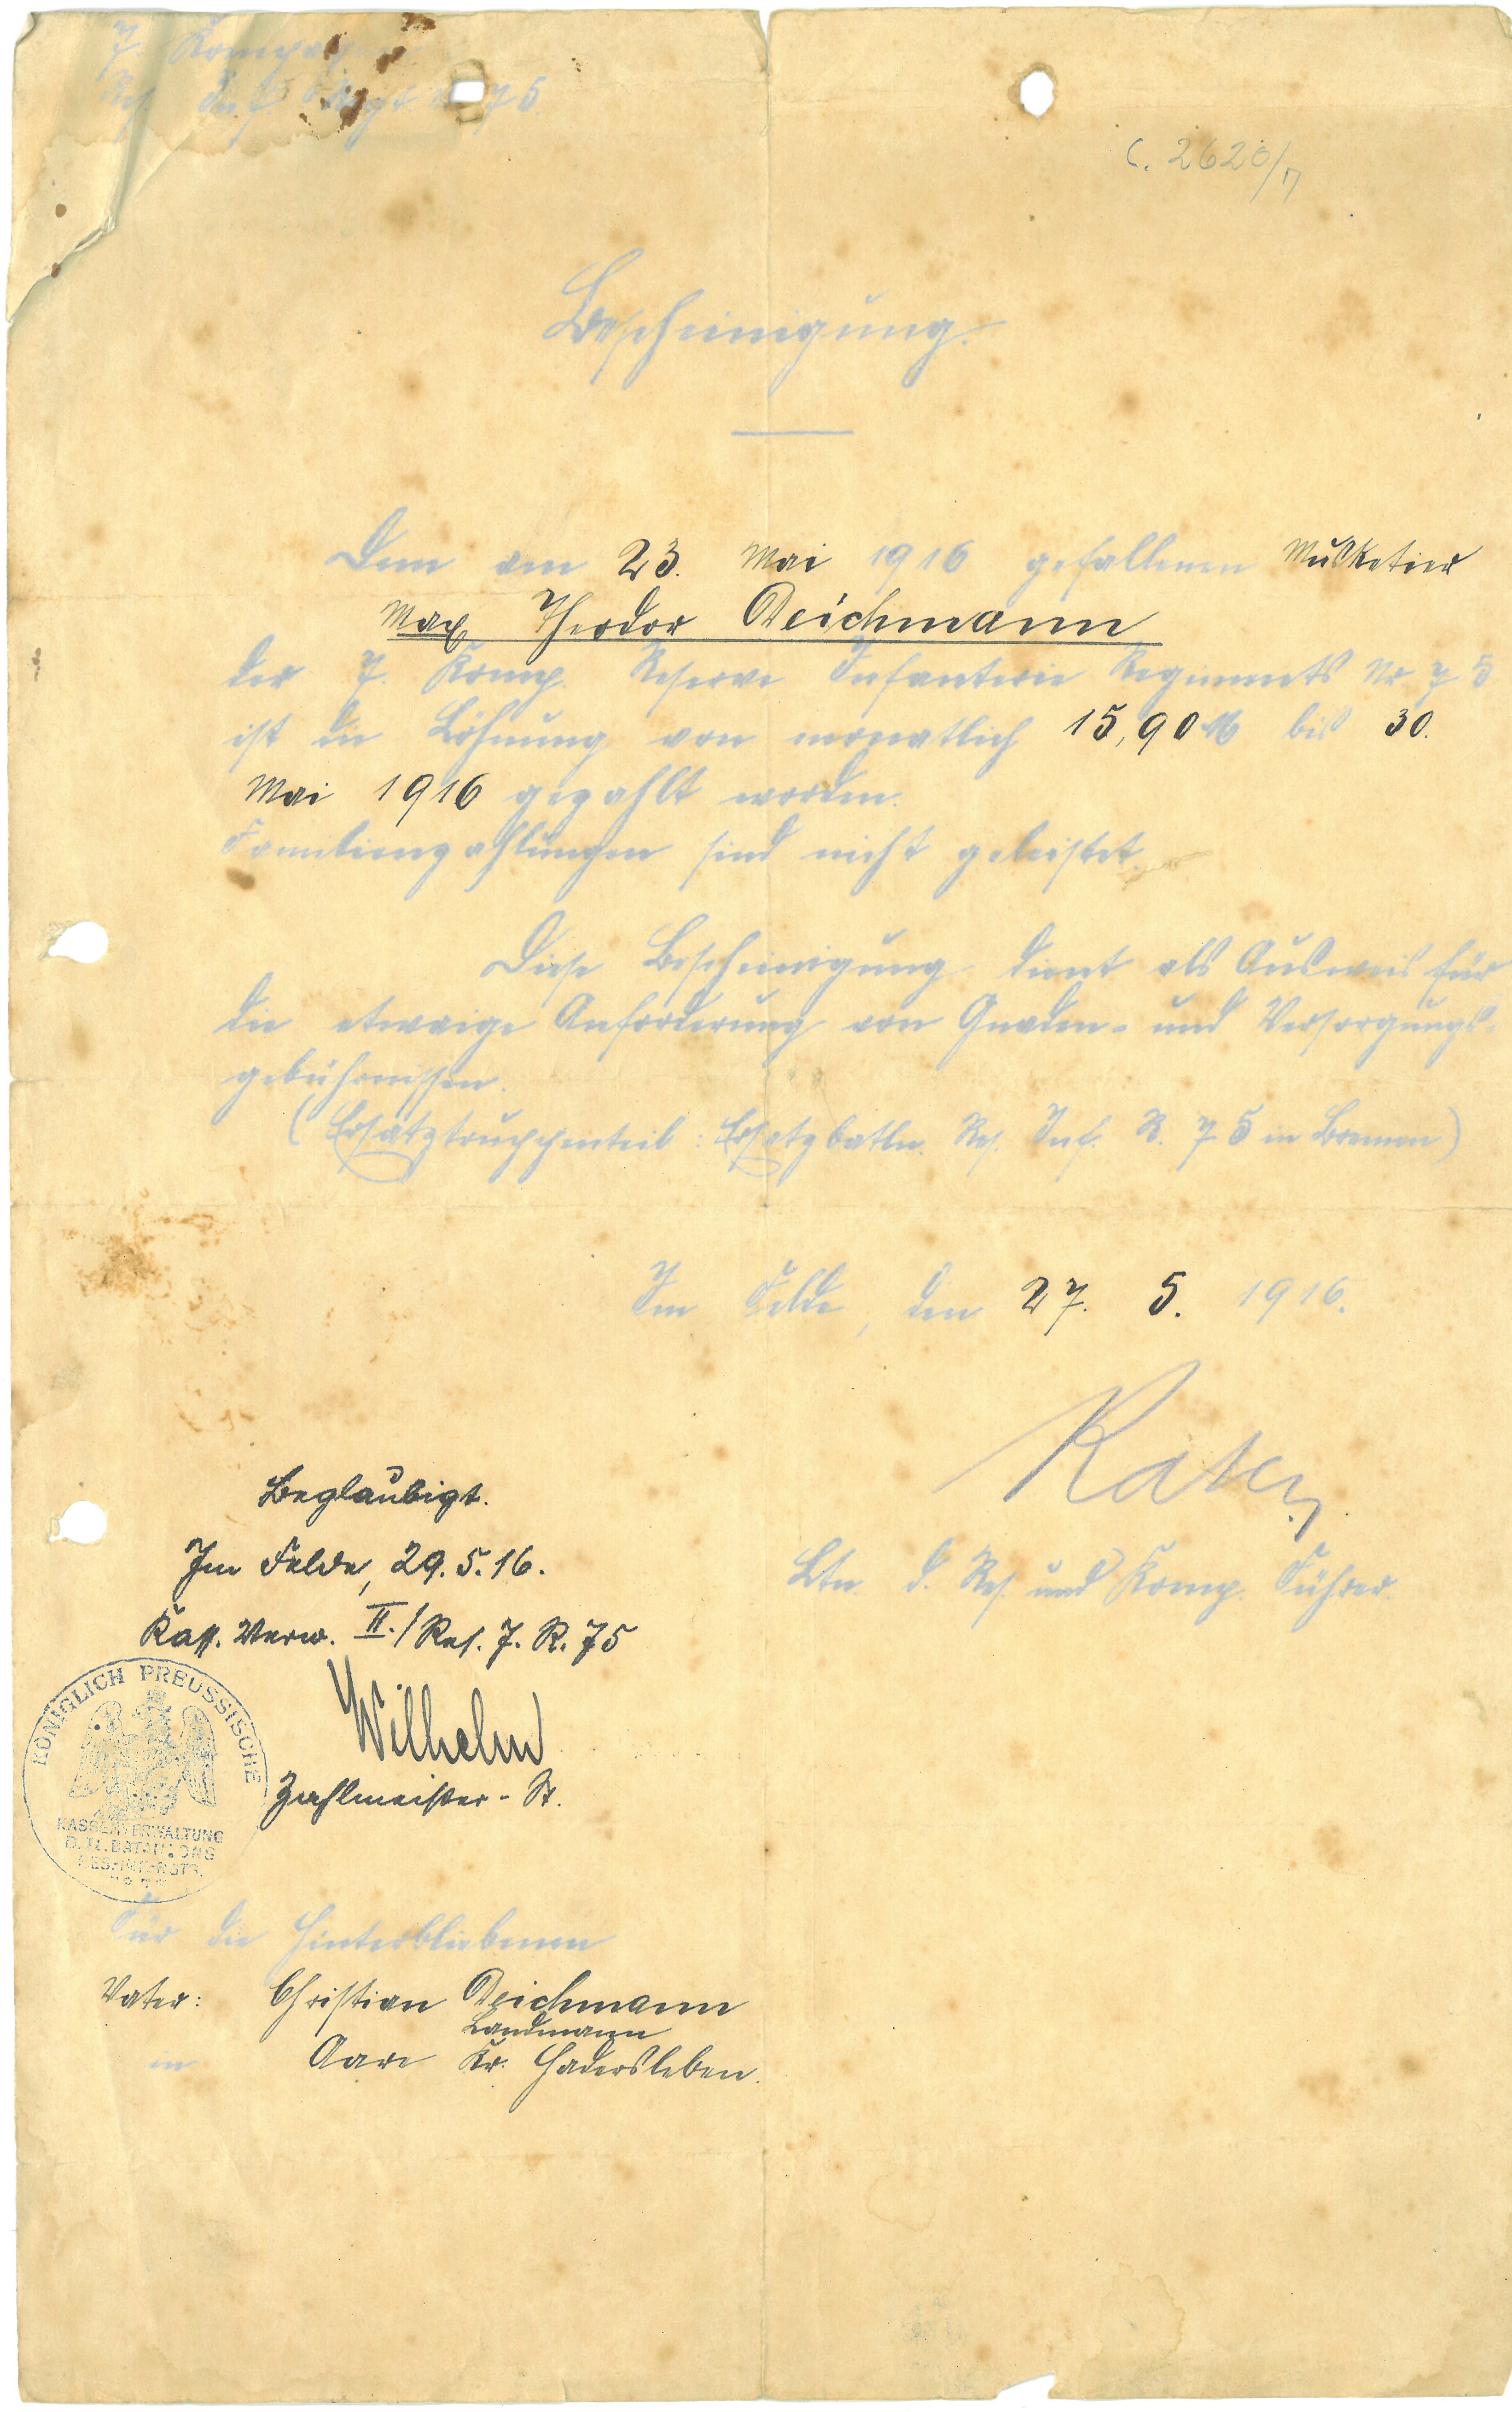 7. Kompagnie
Res. Inf. Regt 75.
C. 2620/
Bescheinigung.
Dem am 23. Mai 1916 gefallenen Musketier
Max Theodor Deichmann
der 7. Komp. Reserve Infanterie Regiments Nr 75
ist die Löhnung von monatlich 15,90 M bis 30.
Mai 1916 gezahlt worden.
Familienzahlungen sind nicht geleistet.
Diese Bescheinigung dient als Ausweis für
die etwaige Anforderung von Gnaden- und Versorgungs-
gebührnissen.
(Ersatztruppenteil: Ersatzbatln. Res. Inf. R. 75 in Bremen)
Im Felde, den 27. 5. 1916.
Ltn. d. Res. und Komp. Führer.
Beglaubigt.
Im Felde, 29.5.16.
Kass. Verw. II./Res. J. R. 75
Wilhelm
Zahlmeister - St.
KÖNIGLICH PREUSSISCHE
KASSENVERWALTUNG
D. II. BATAILLONS
RES. INF. RGTS.
Für die Hinterbliebenen
Vater: Christian Deichmann
Landmann
in Aarö Kr. Hadersleben.